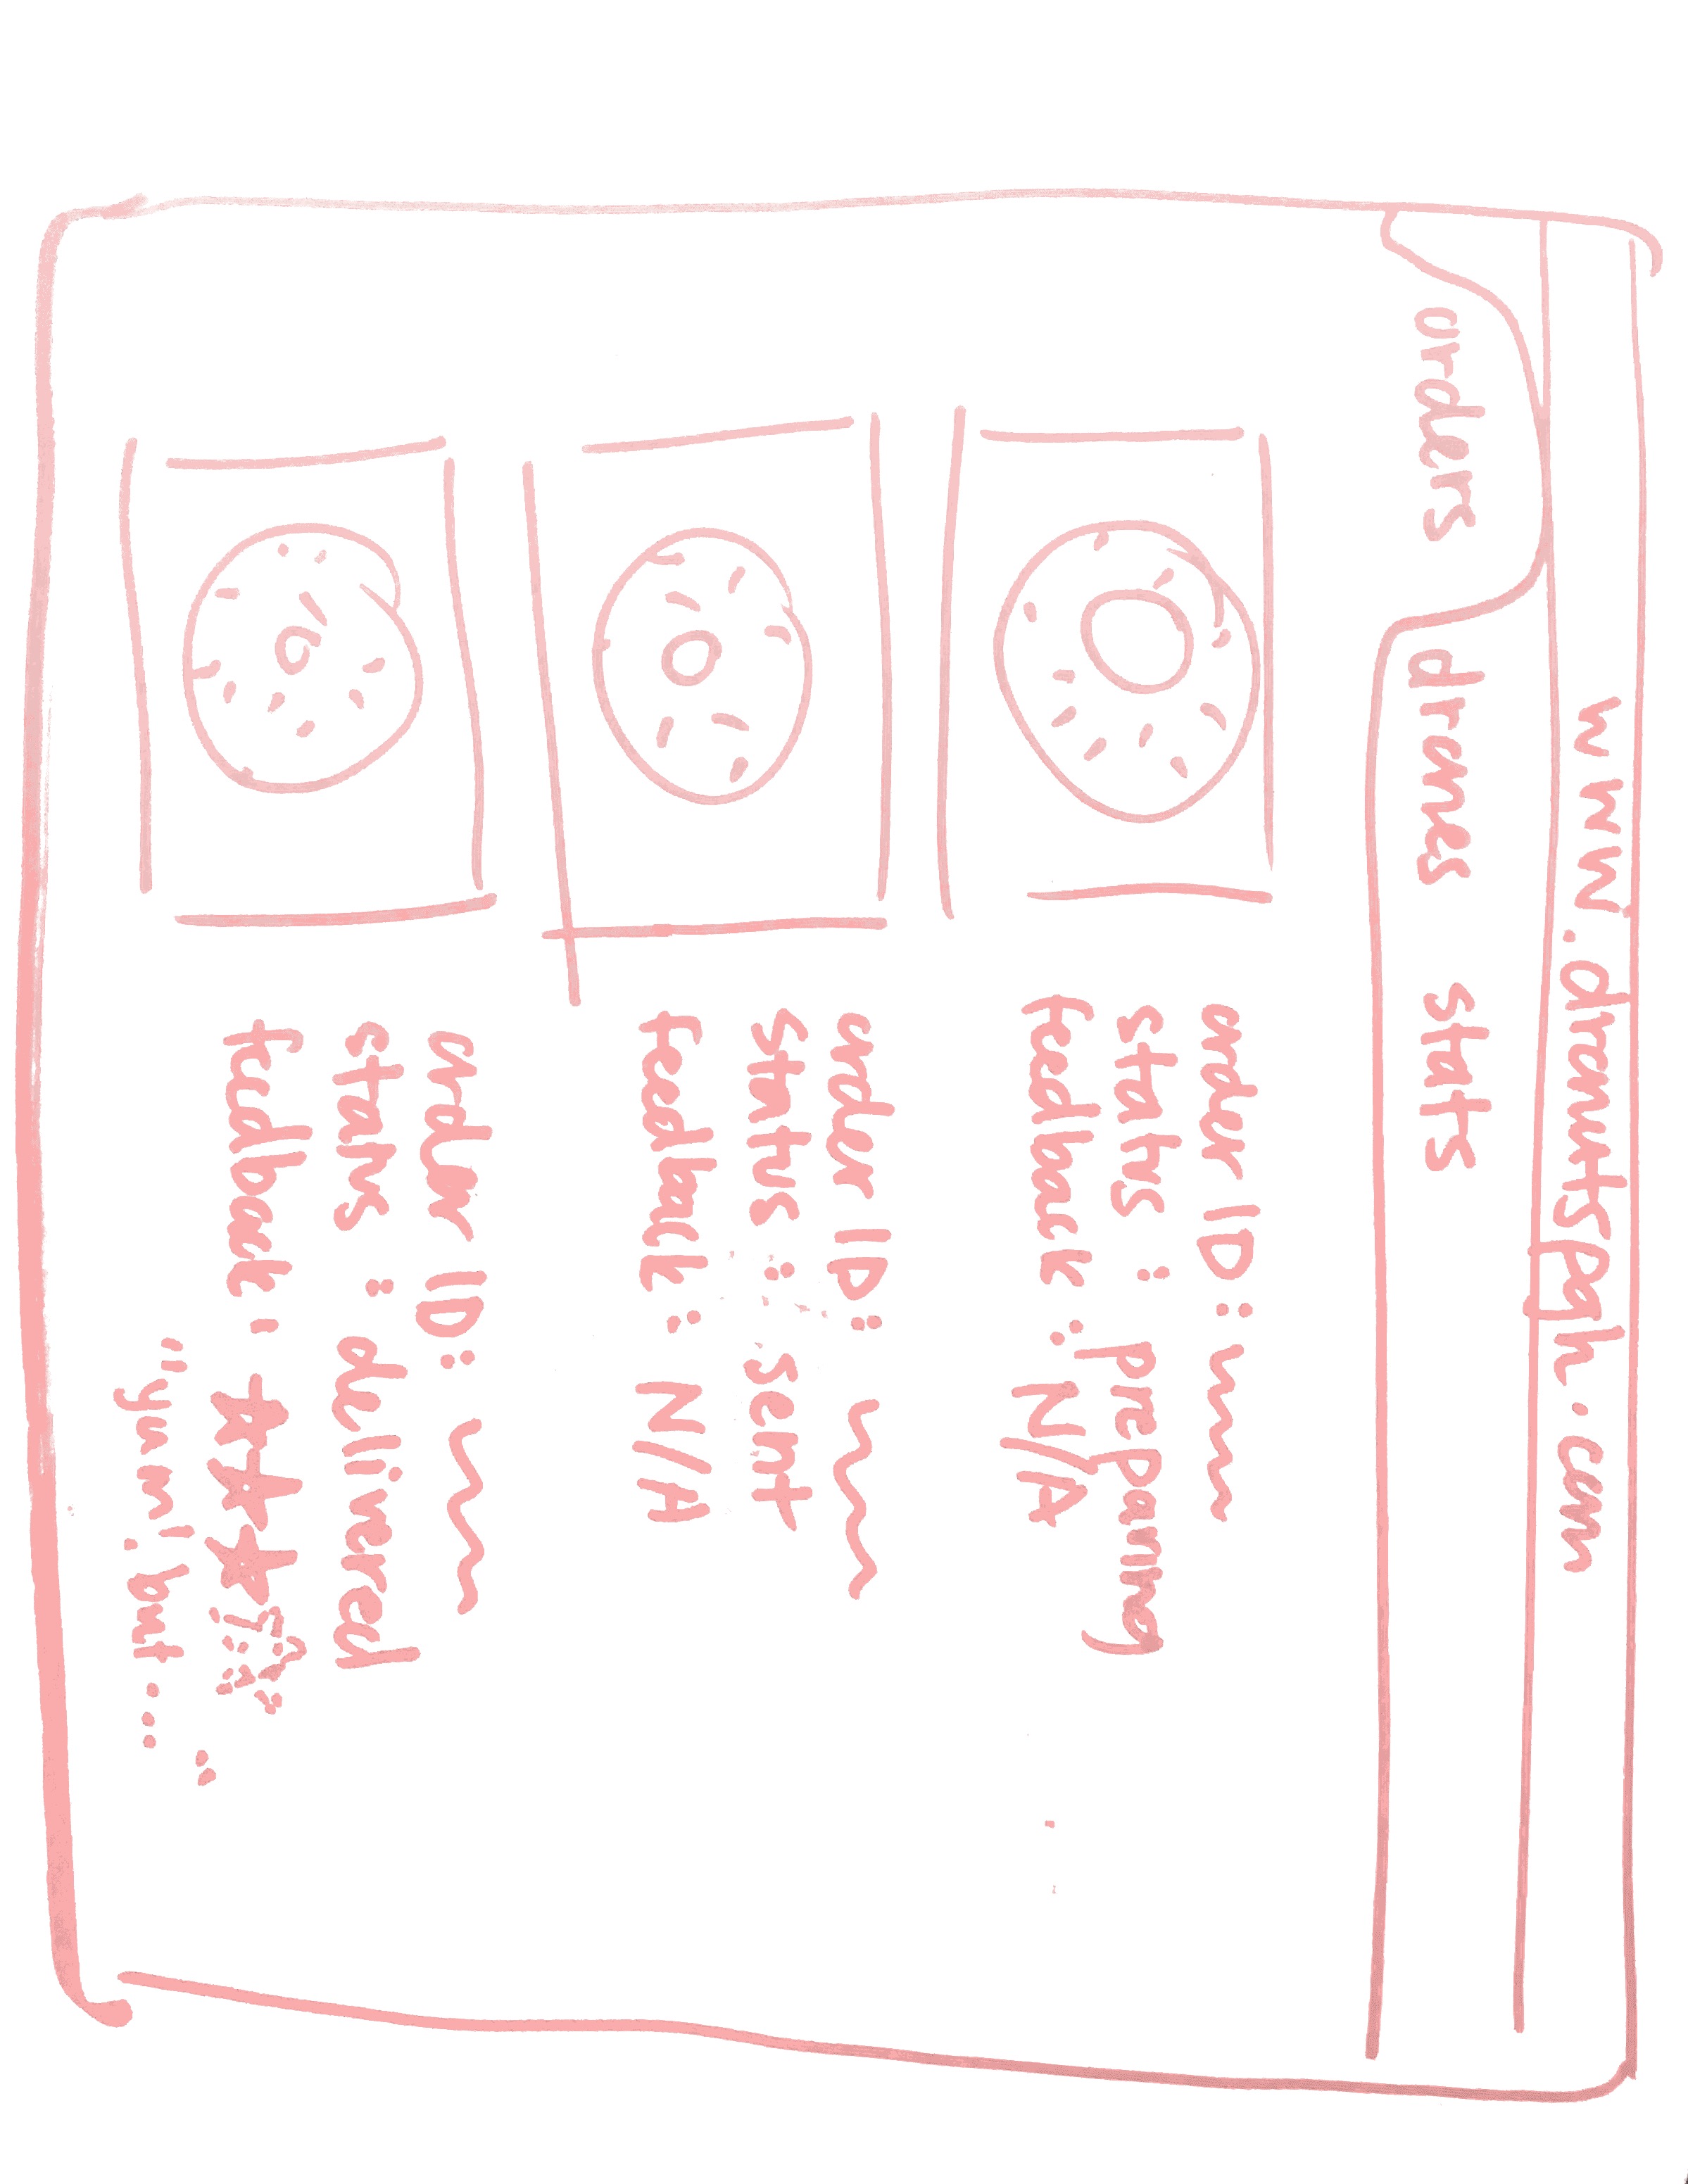 www.dronutspgh.com
orders drones stats
order ID:
status: preparing
feedback: N/A
order ID:
status: sent
feedback: N/A
order ID:
status: delivered
feedback: ★★★☆
"yum! but...